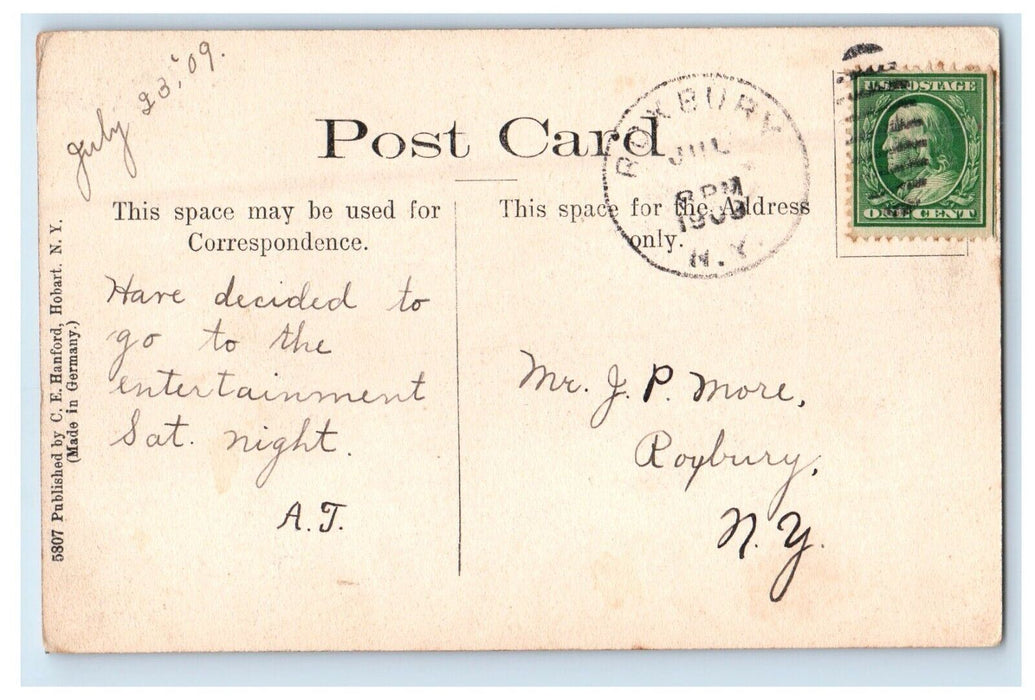 July 23, '09.
Post Card
This space may be used for
Correspondence.
This space for the Address
only.
ROXBURY
JUL
6 PM
1909
N.Y.
U.S. POSTAGE
ONE CENT
Have decided to
go to the
entertainment
Sat. night.
A.T.
Mr. J. P. More,
Roxbury,
N.Y.
5807 Published by C. E. Hanford, Hobart. N. Y.
(Made in Germany.)